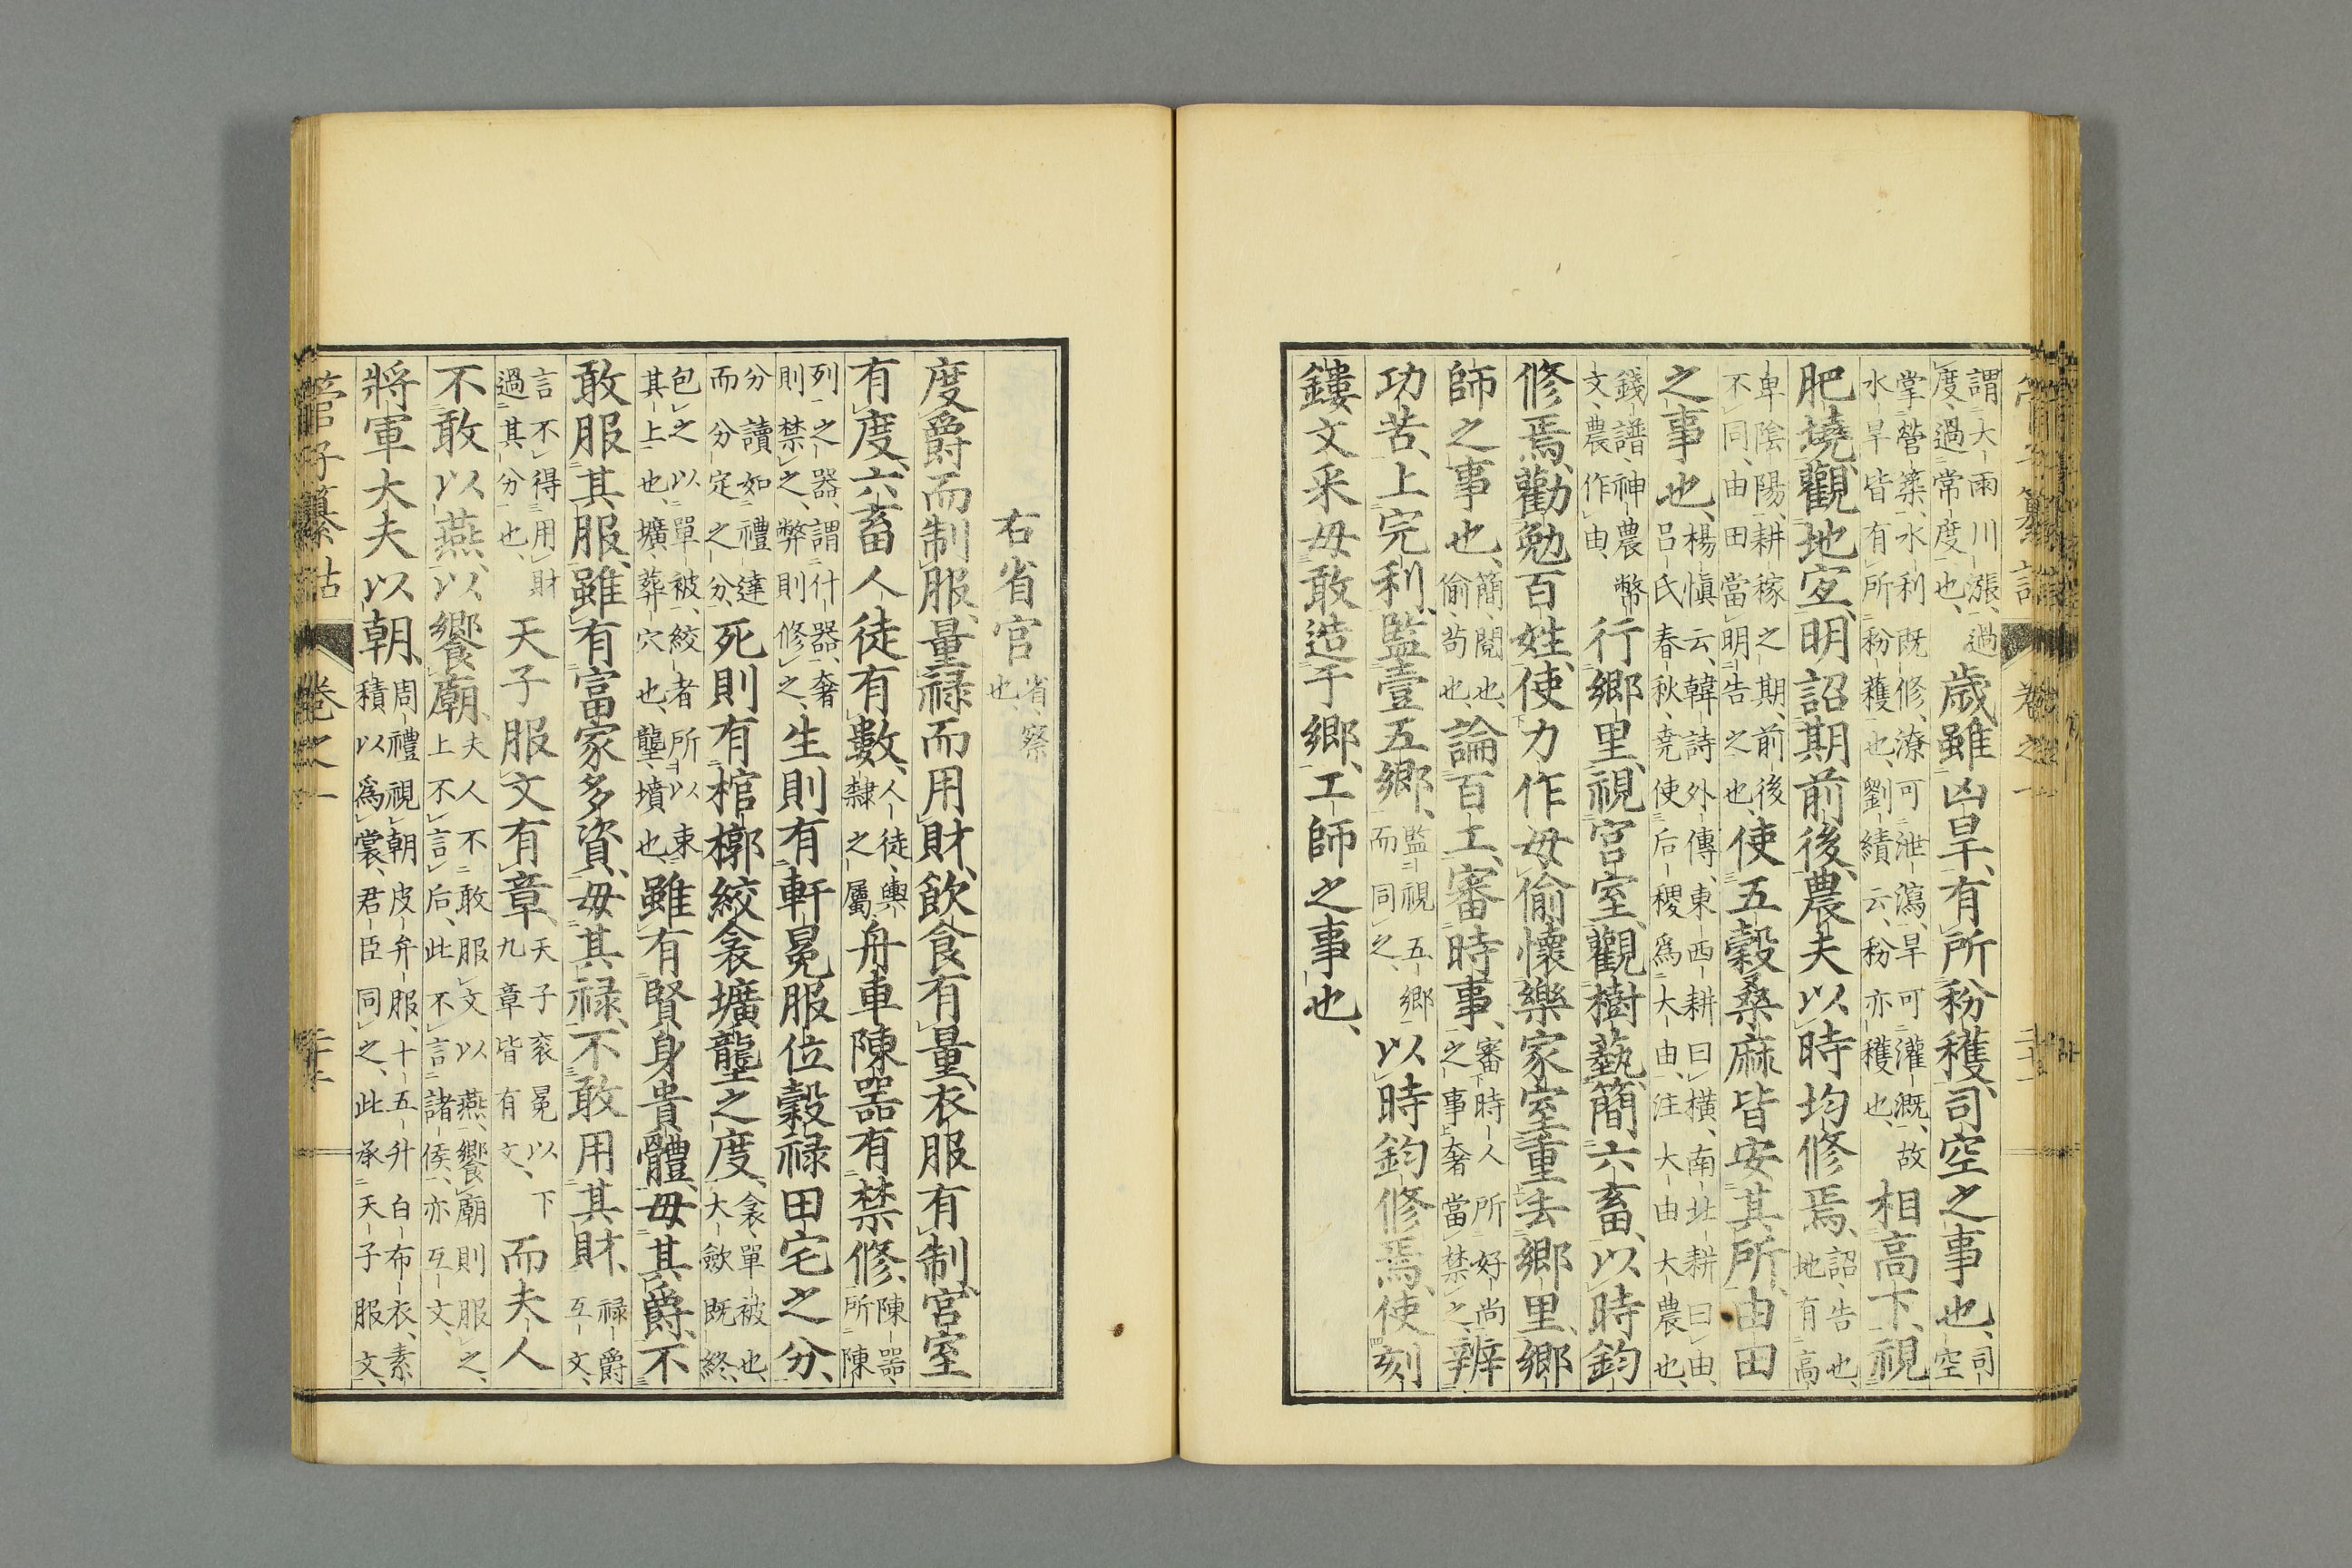 謂大雨川漲、過度、過常度也、歳雖凶旱、有所秎穫、司空之事也、司空
掌營築、水利既修、潦可泄瀉、旱可灌漑、故水旱皆有所秎穫也、劉績云、秎亦穫也、相高下、視
肥墝、觀地宜、明詔期前後、農夫以時均修焉、詔、告也、地有高
卑陰陽、耕稼之期、前後不同、由田當明告之也、使五穀桑麻皆安其所、由田
之事也、楊愼云、韓詩外傳、東西耕曰橫、南北耕曰由、呂氏春秋、堯使后稷爲大由、注大由大農也、
錢譜、神農幣文、農作由、行鄉里、視宮室、觀樹藝、簡六畜、以時鈞
修焉、勸勉百姓、使力作毋偷、懷樂家室、重去鄉里、鄉
師之事也、簡、閱也、偷、苟也、論百工、審時事、審時人所好尚之事、奢當禁之、辨
功苦、上完利、監壹五鄉、監視五鄉而同之、以時鈞修焉、使刻
鏤文采毋敢造于鄉、工師之事也、
右省官省、察也、
度爵而制服、量祿而用財、飲食有量、衣服有制、宮室
有度、六畜人徒有數、人徒、輿隸之屬、舟車陳器有禁修、陳器、所陳
列之器、謂什器、奢則禁之、弊則修之、生則有軒冕服位穀祿田宅之分、
分讀如禮達而分定之分、死則有棺槨絞衾壙壟之度、衾、單被也、大斂既終、
包之以單被、絞者所以束其上也、壙、葬穴也、壟、墳也、雖有賢身貴體、毋其爵、不
敢服其服、雖有富家多資、毋其祿、不敢用其財、祿爵互文、
言不得用財過其分也、天子服文有章、天子袞冕以下九章皆有文、而夫人
不敢以燕以饗廟、夫人不敢服文以燕、饗廟則服之、上不言后、此不言諸侯、亦互文、
將軍大夫以朝、周禮視朝皮弁服、十五升白布衣、素積以爲裳、君臣同之、此承天子服文、
管子纂詁 卷之一